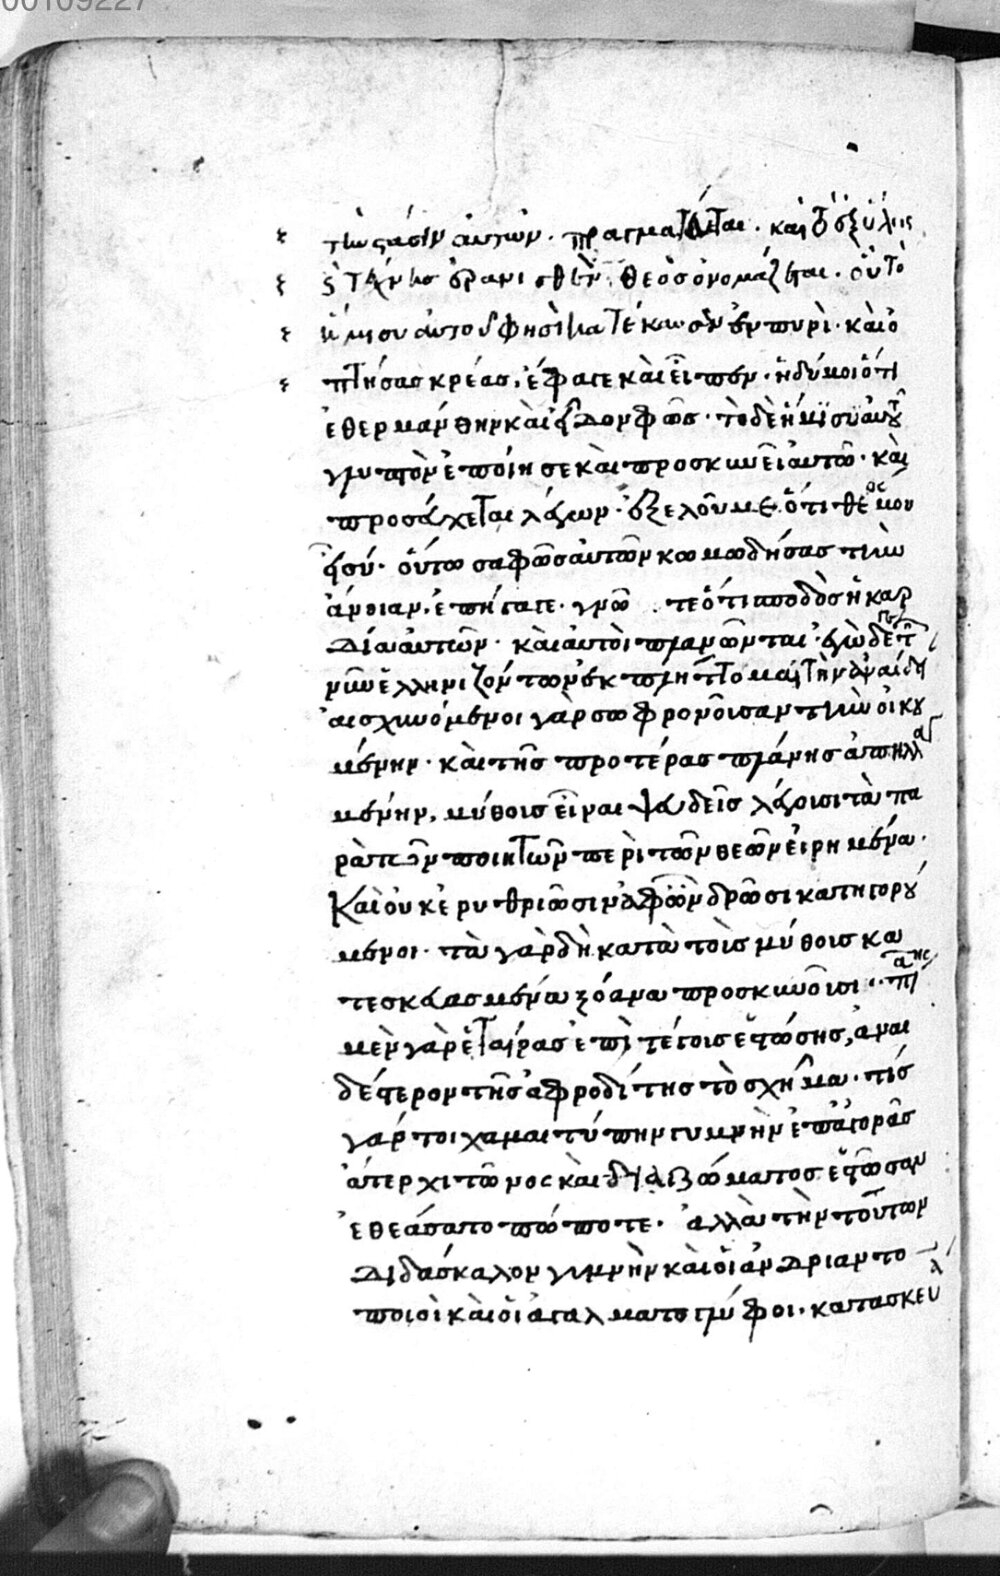 00109227
τὴν στάσιν αὐτῶν. πραγματεύεται. καὶ ὁ ἐξ ὕλης
καὶ τέχνης ὀργανισθεὶς θεὸς ὀνομάζεται. οὗ τὸ
ἥμισυ αὐτοῦ φησὶ κατέκαυσεν ἐν πυρὶ. καὶ ὀ
πτήσας κρέας, ἔφαγε καὶ εἶπεν. ἡδύ μοι ὅτι
ἐθερμάνθην καὶ εἶδον φῶς. τὸ δὲ ἥμισυ αὐτοῦ
γλυπτὸν ἐποίησε καὶ προσκυνεῖ αὐτῶ. καὶ
προσεύχεται λέγων. ἐξελοῦ με ὅτι θεός μου
εἶ σύ. οὕτω σαφῶς αὐτῶν κωμωδήσας τὴν
ἄνοιαν, ἐπήγαγε. γνῶτε ὅτι σποδὸς ἡ καρ
δία αὐτῶν. καὶ αὐτοὶ πλανῶνται. ἐγὼ δὲ τῶν
νῦν ἑλληνιζόντων ἐκπλήττομαι τὴν ἀναίδειαν
αἰσχυνόμενοι γὰρ σωφρονοῦσαν τὴν οἰκου
μένην. καὶ τῆς προτέρας πλάνης ἀπηλλαγ
μένην, μύθοις εἶναι ψευδεῖς λέγουσι τὰ πα
ρὰ τῶν ποιητῶν περὶ τῶν θεῶν εἰρημένα.
Καὶ οὐκ ἐρυθριῶσιν ἐφ' ὧν δρῶσι κατηγορού
μενοι. τὰ γὰρ δὴ κατὰ τοὺς μύθους κα
τεσκευασμένα ξόανα προσκυνοῦσι.
μὲν γὰρ ἑταίρας ἐπὶ τέγους ἑστώσης, ἀναι
δέστερον τῆς ἀφροδίτης τὸ σχῆμα. τίς
γάρ τοι χαμαιτύπην γυμνὴν ἐπ' ἀγορᾶς
ἄτερ χιτῶνος καὶ διαζώματος ἑστῶσαν
ἐθεάσατο πώποτε. ἀλλὰ τὴν τούτων
διδάσκαλον γυμνὴν καὶ οἱ ἀνδριαντο
ποιοὶ καὶ οἱ ἀγαλματογλύφοι. κατασκευά